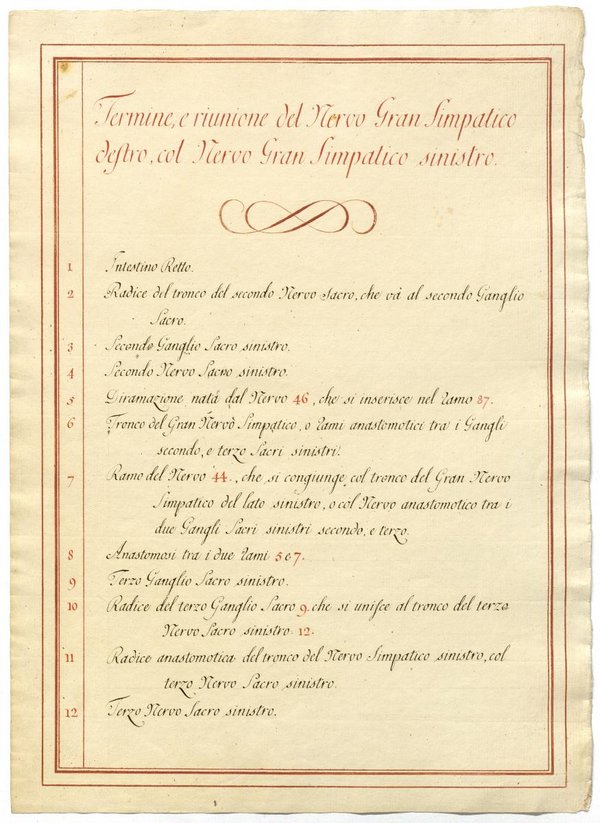 Termine, e riunione del Nervo Gran Simpatico
destro, col Nervo Gran Simpatico sinistro.
1 Intestino Retto.
2 Radice del tronco del secondo Nervo Sacro, che và al secondo Ganglio
Sacro.
3 Secondo Ganglio Sacro sinistro.
4 Secondo Nervo Sacro sinistro.
5 Diramazione nata dal Nervo 46, che si inserisce nel Ramo 87.
6 Tronco del Gran Nervo Simpatico, o Rami anastomotici tra i Gangli
secondo, e terzo Sacri sinistri.
7 Ramo del Nervo 44., che si congiunge col tronco del Gran Nervo
Simpatico del lato sinistro, o col Nervo anastomotico tra i
due Gangli Sacri sinistri secondo, e terzo.
8 Anastomosi tra i due Rami 5 e 7.
9 Terzo Ganglio Sacro sinistro.
10 Radice del terzo Ganglio Sacro 9. che si unisce al tronco del terzo
Nervo Sacro sinistro 12.
11 Radice anastomotica del tronco del Nervo Simpatico sinistro, col
terzo Nervo Sacro sinistro.
12 Terzo Nervo Sacro sinistro.